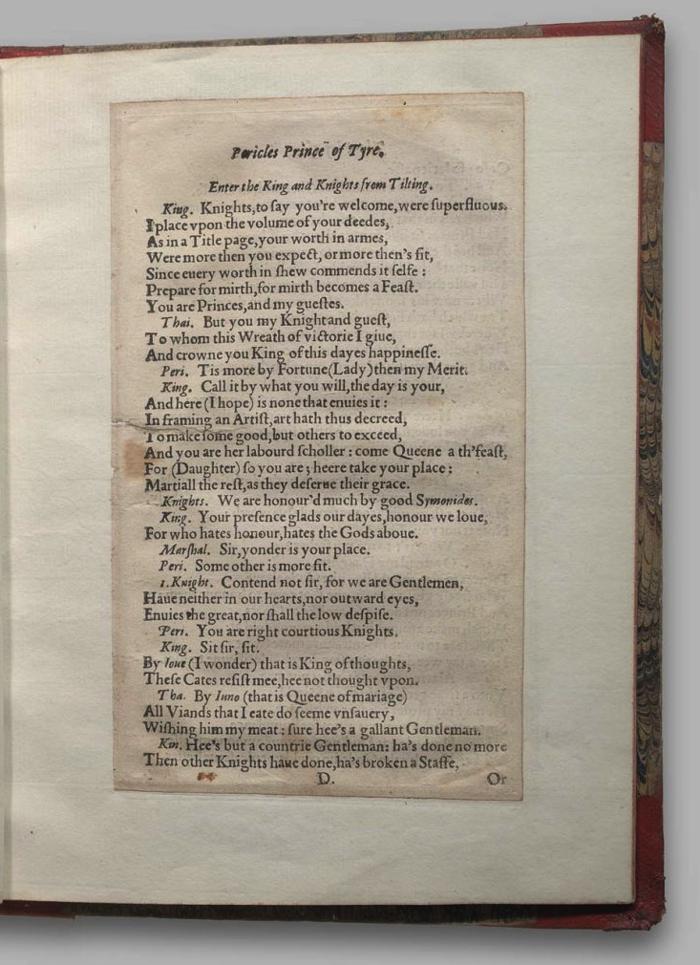 Pericles Prince of Tyre.
Enter the King and Knights from Tilting.
King. Knights,to ſay you're welcome,were ſuperfluous.
I place vpon the volume of your deedes,
As in a Title page,your worth in armes,
Were more then you expect, or more then's fit,
Since euery worth in ſhew commends it ſelfe :
Prepare for mirth,for mirth becomes a Feaſt.
You are Princes,and my gueſtes.
Thai. But you my Knight and gueſt,
To whom this Wreath of victorie I giue,
And crowne you King of this dayes happineſſe.
Peri. Tis more by Fortune(Lady)then my Merit.
King. Call it by what you will,the day is your,
And here (I hope) is none that enuies it :
In framing an Artiſt,art hath thus decreed,
To make ſome good,but others to exceed,
And you are her labourd ſcholler : come Queene a th'feaſt,
For (Daughter) ſo you are ; heere take your place :
Martiall the reſt,as they deſerue their grace.
Knights. We are honour'd much by good Symonides.
King. Your preſence glads our dayes,honour we loue,
For who hates honour,hates the Gods aboue.
Marſhal. Sir,yonder is your place.
Peri. Some other is more fit.
1.Knight. Contend not ſir, for we are Gentlemen,
Haue neither in our hearts,nor outward eyes,
Enuies the great,nor ſhall the low deſpiſe.
Peri. You are right courtious Knights.
King. Sit ſir, ſit.
By Ioue (I wonder) that is King of thoughts,
Theſe Cates reſiſt mee,hee not thought vpon.
Tha. By Iuno (that is Queene of mariage)
All Viands that I eate do ſeeme vnſauery,
Wiſhing him my meat : ſure hee's a gallant Gentleman.
Kin. Hee's but a countrie Gentleman: ha's done no more
Then other Knights haue done,ha's broken a Staffe,
D. Or